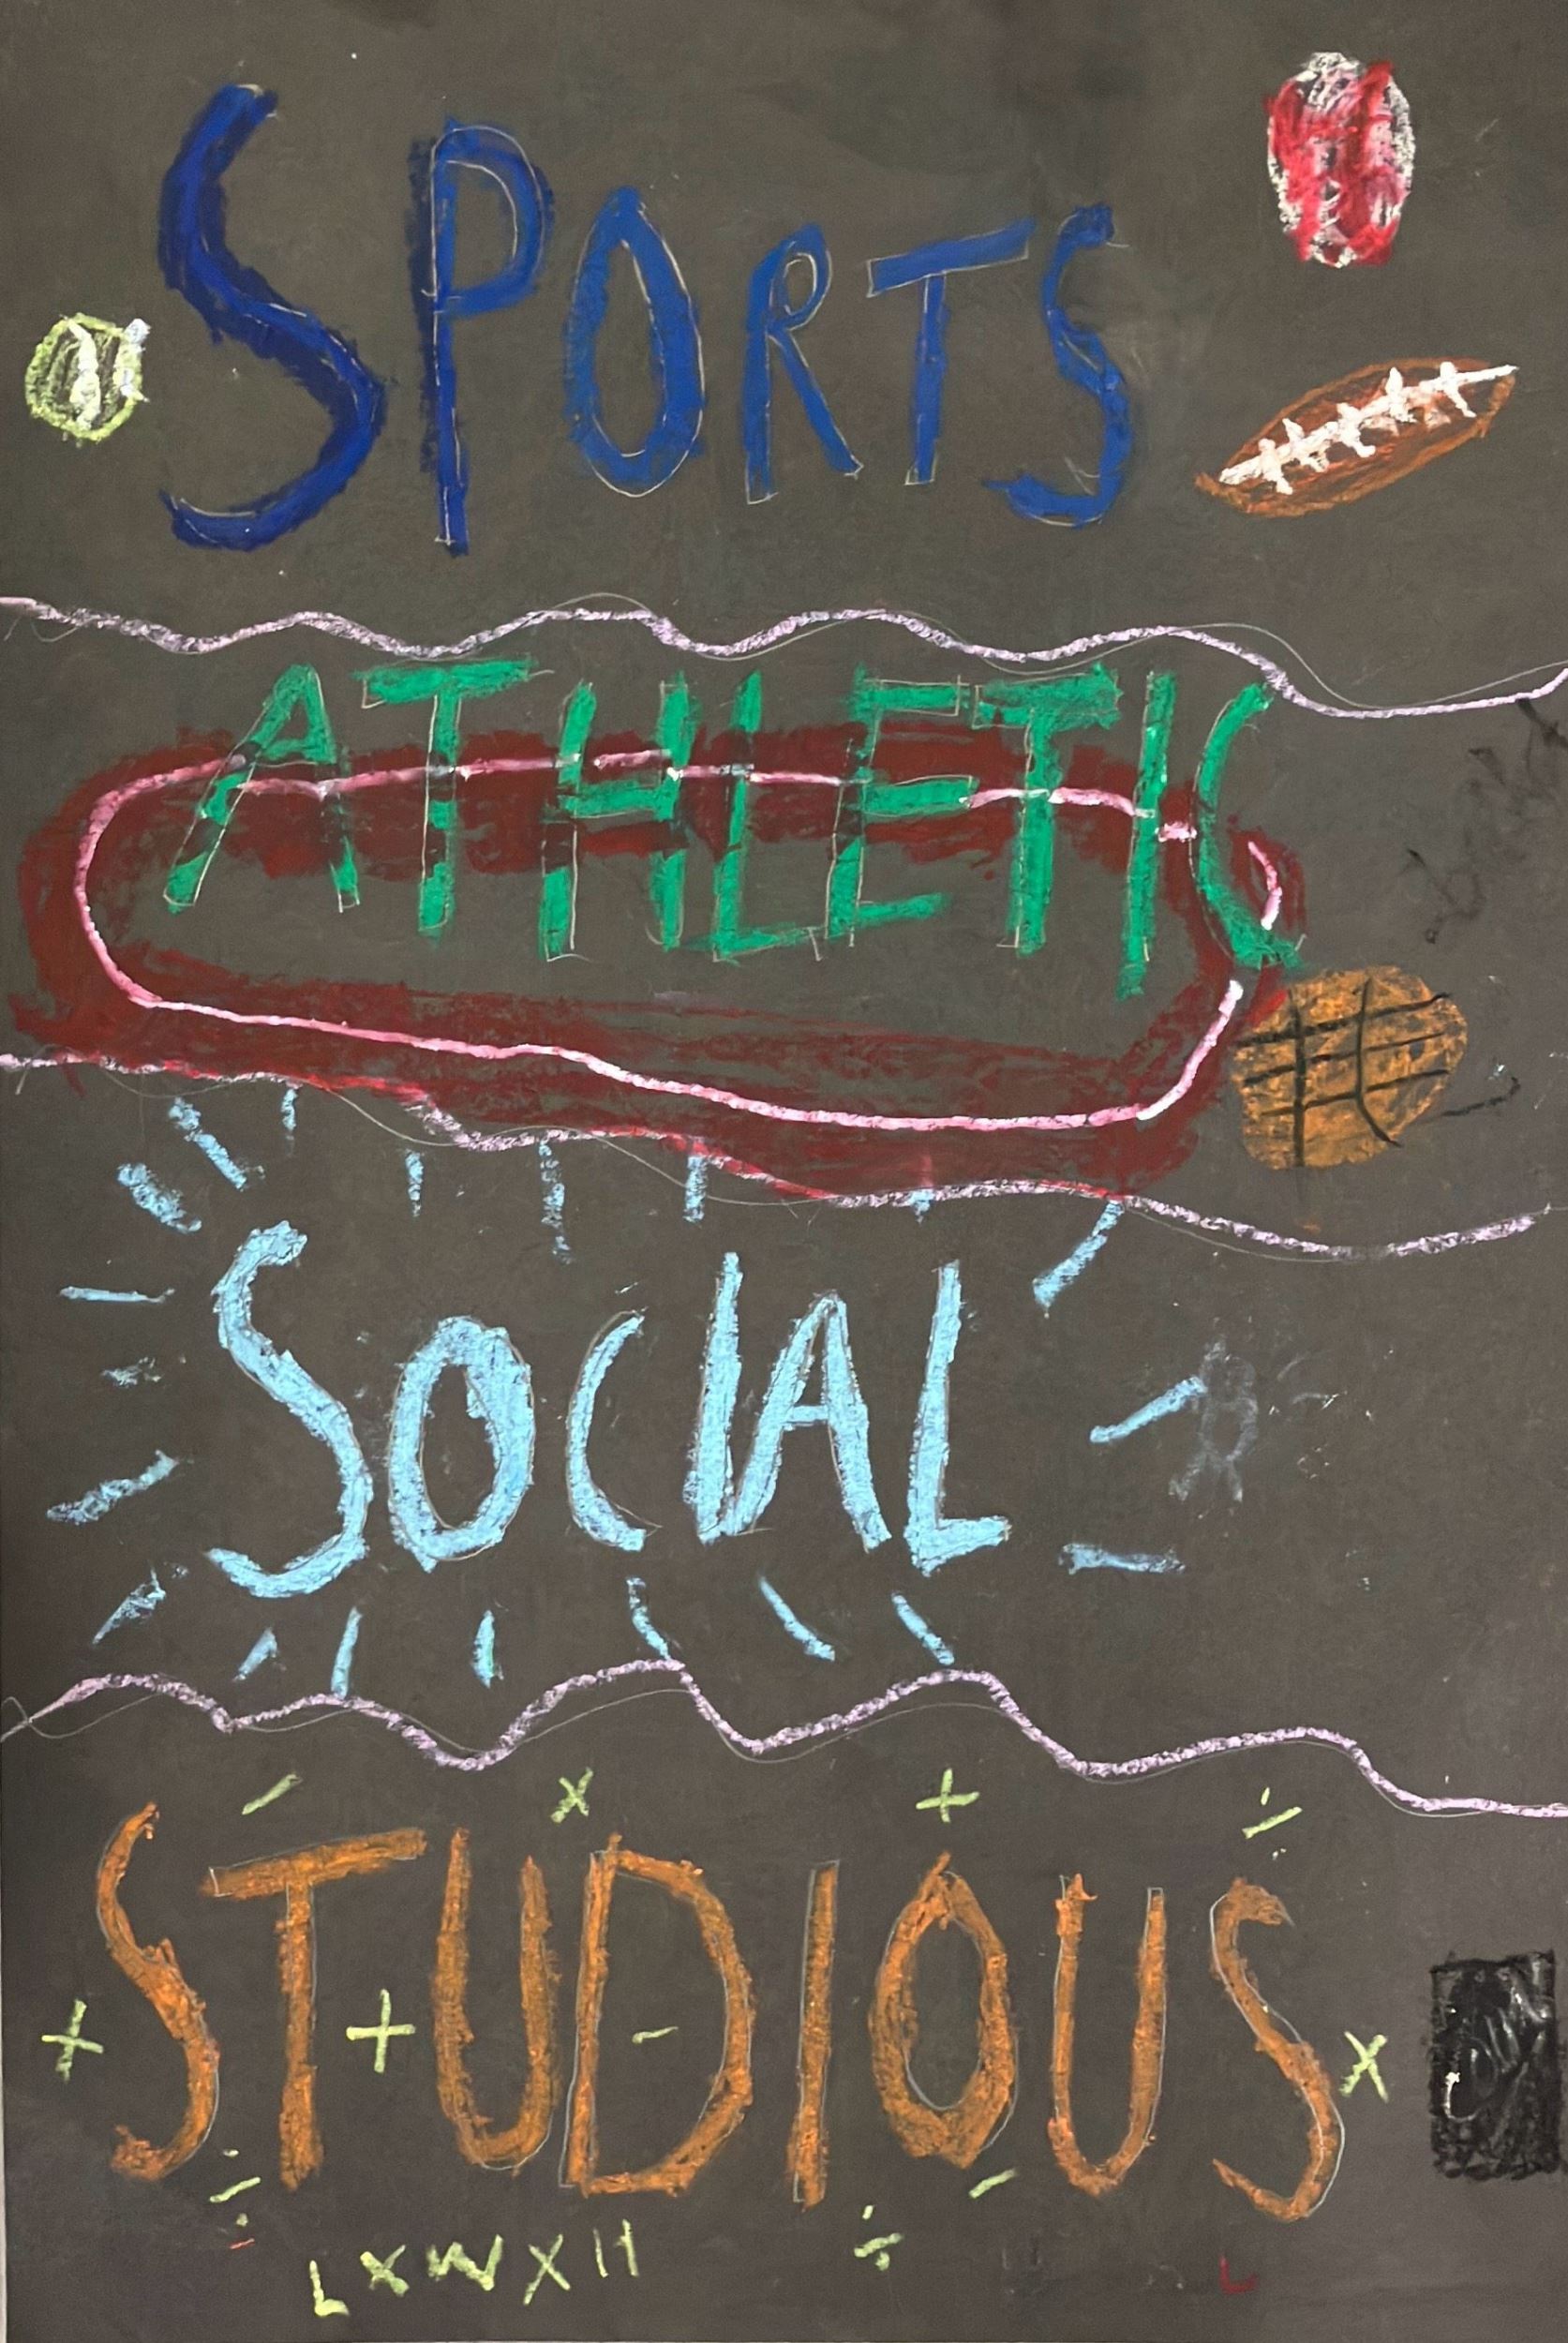 SPORTS
ATHLETIC
SOCIAL
- x + ÷
STUDIOUS
+ + - x
÷ ÷ -
LXWXH